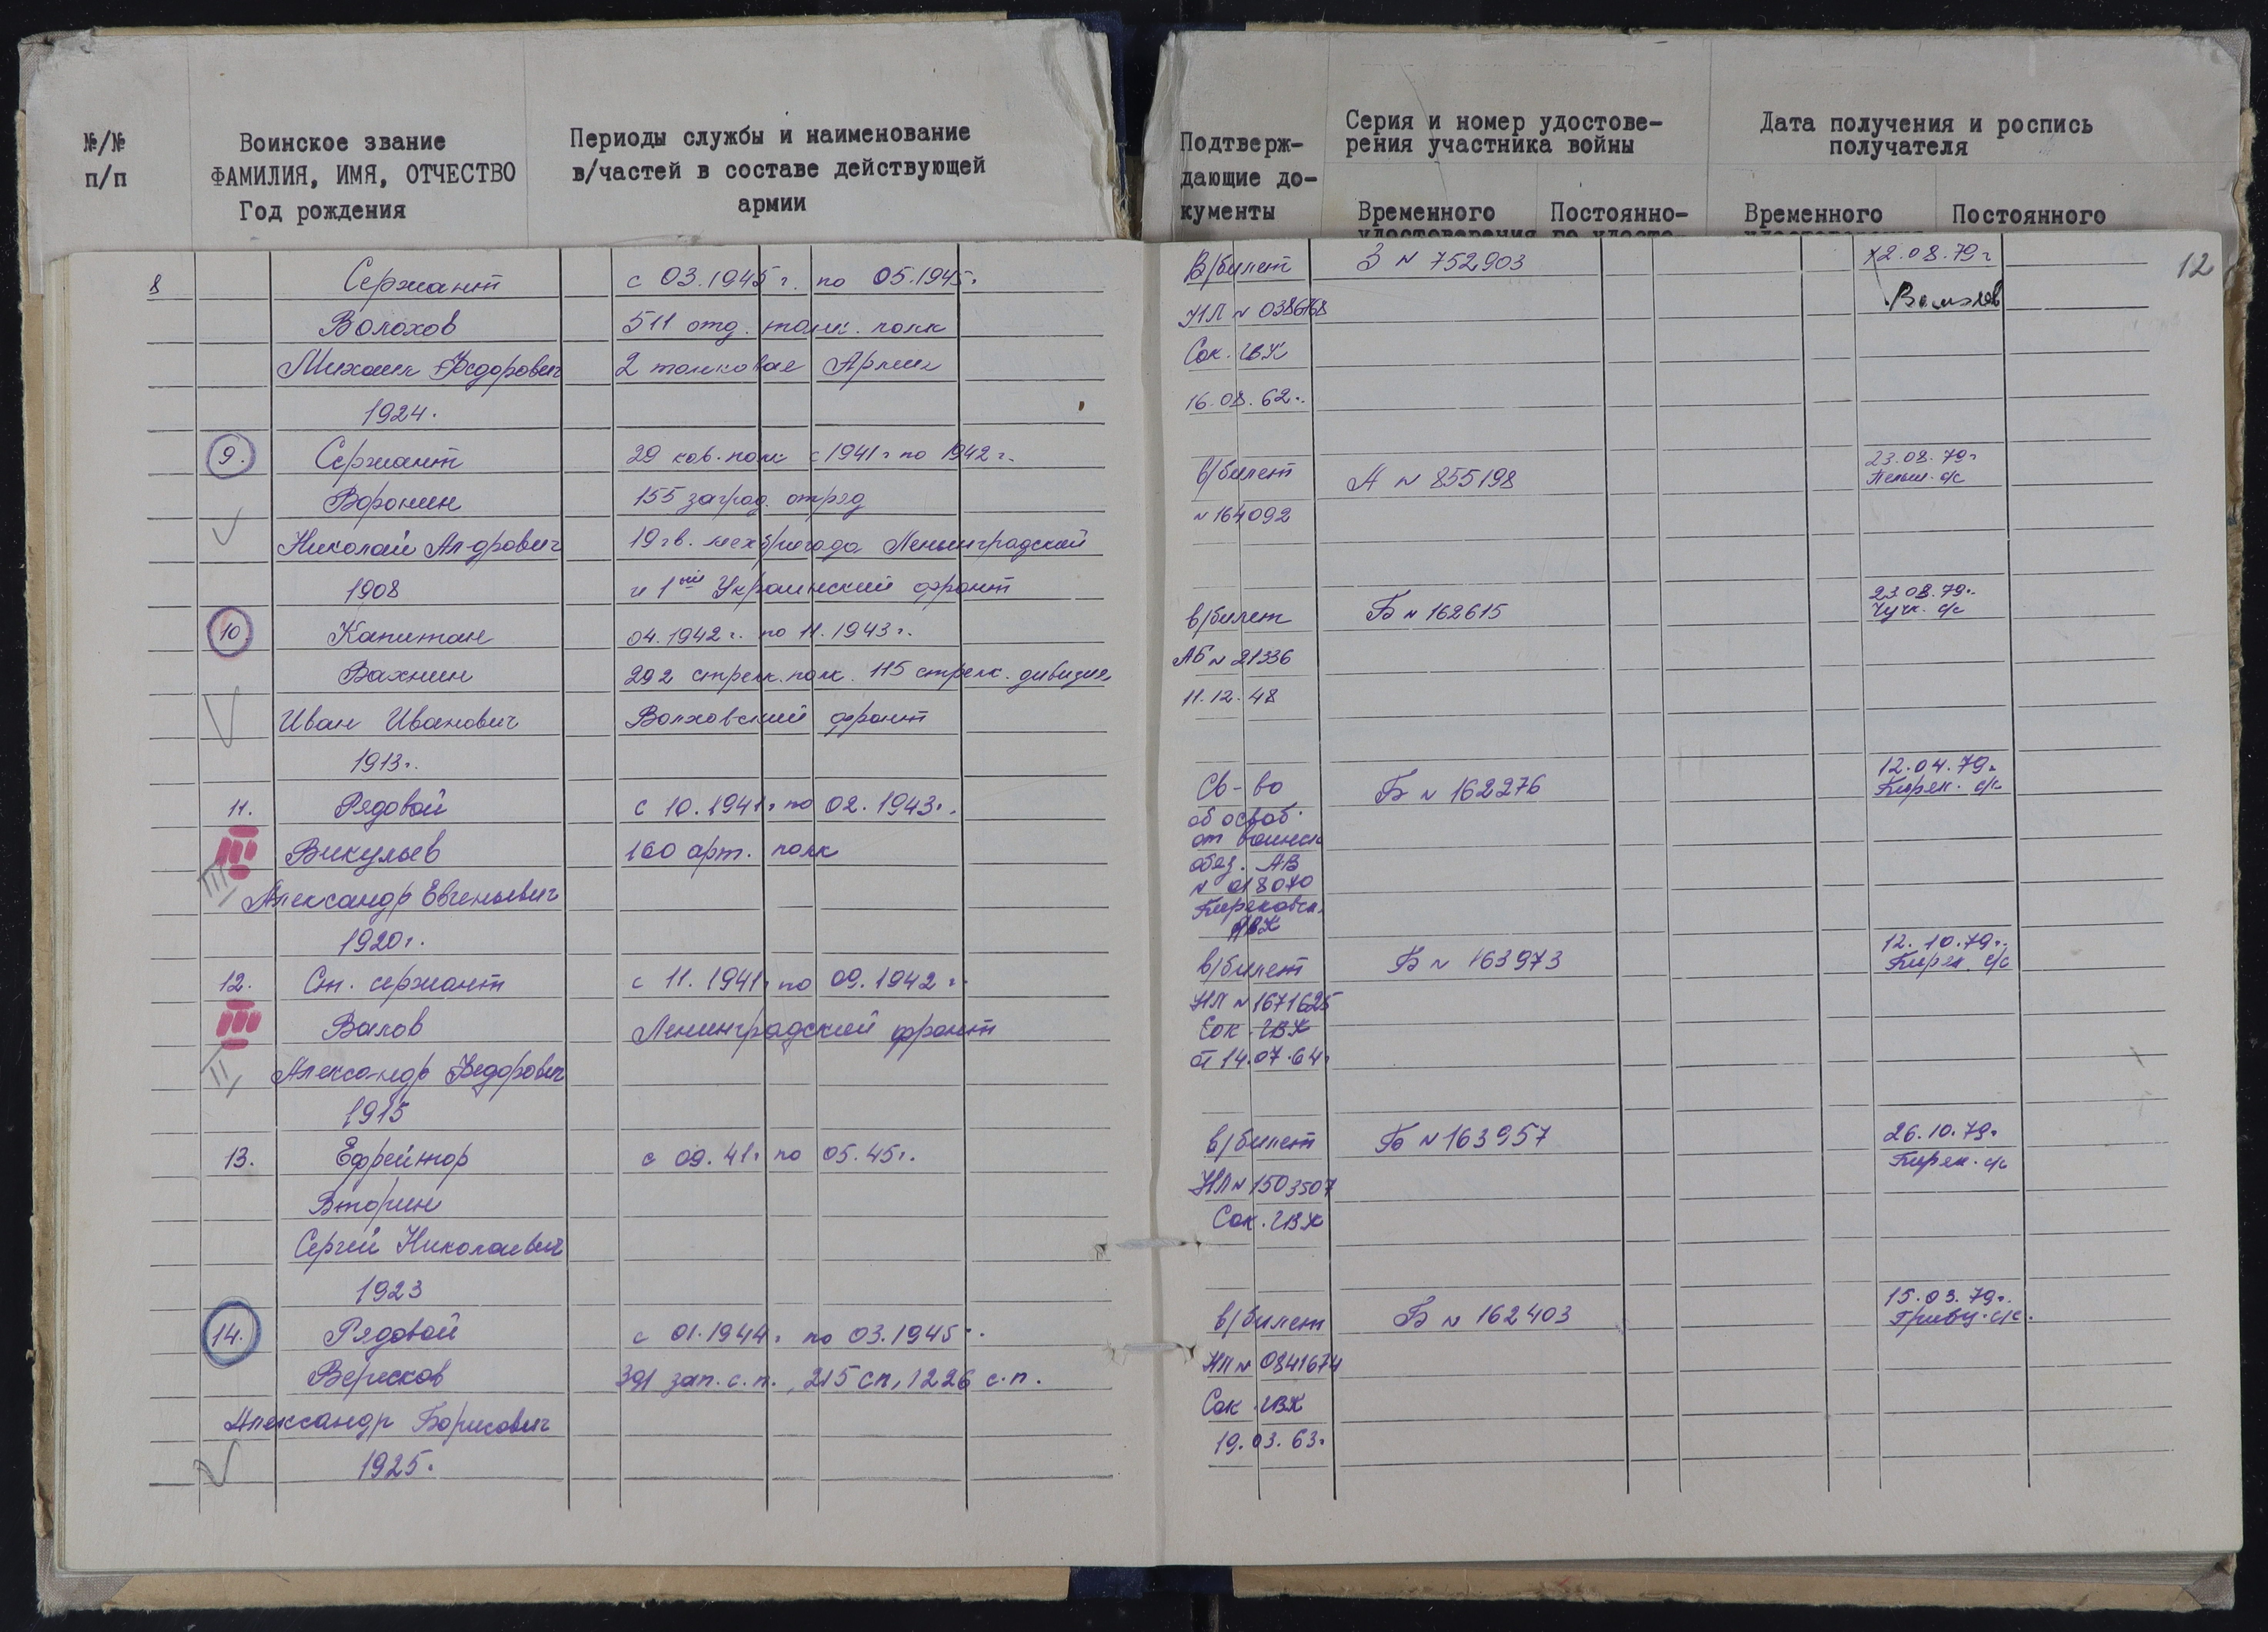 №/№
п/п
Воинское звание
ФАМИЛИЯ, ИМЯ, ОТЧЕСТВО
Год рождения
Периоды службы и наименование
в/частей в составе действующей
армии
Подтверж-
дающие до-
кументы
Серия и номер удостове-
рения участника войны
Временного
Постоянно-
удостоверения го удосто-
Дата получения и роспись
получателя
Временного
Постоянного
12
8
Сержант
Волохов
Михаил Федорович
1924.
с 03.1945 г. по 05.1945г.
511 отд. танк. полк
2 танковая Армия
В/билет
НЛ № 0386768
Сок. ГВК
16.08.62г.
З № 752903
12.08.79г
9.
Сержант
Воронин
Николай Ал-дрович
1908
29 кав. полк с 1941г по 1942г.
155 заград. отряд
19 гв. мехбригада Ленинградский
и 1ый Украинский фронт
в/билет
№ 164092
А № 855198
23.08.79г
с/с
10
Капитан
Вахнин
Иван Иванович
1913г.
04.1942г. по 11.1943г.
292 стрелк. полк. 115 стрелк. дивизия
Волховский фронт
в/билет
АБ № 21336
11.12.48
Б № 162615
23.08.79г.
Чучк. с/с
11.
Рядовой
Викульев
Александр Евгеньевич
1920г.
III
с 10.1941г по 02.1943г.
160 арт. полк
Св-во
об освоб.
от воинск
обяз. АВ
№ 018070
РВК
Б № 162276
12.04.79г.
Бирях. с/с
12.
Ст. сержант
Валов
Александр Федорович
1915
II
с 11.1941г по 09.1942г.
Ленинградский фронт
в/билет
НЛ № 1671625
Сок. ГВК
от 14.07.64г
Б № 163973
12.10.79г.
Бирях. с/с
13.
Ефрейтор
Вторин
Сергей Николаевич
1923
с 09.41г по 05.45г.
в/билет
НЛ № 1503507
Сок. ГВК
Б № 163957
26.10.79г
Бирях. с/с
14.
Рядовой
Вересков
Александр Борисович
1925.
с 01.1944г по 03.1945г.
391 зап. с.п., 215 сп, 1226 с.п.
в/билет
НЛ № 0841674
Сок. ГВК
19.03.63г
Б № 162403
15.03.79г.
Гривц. с/с.